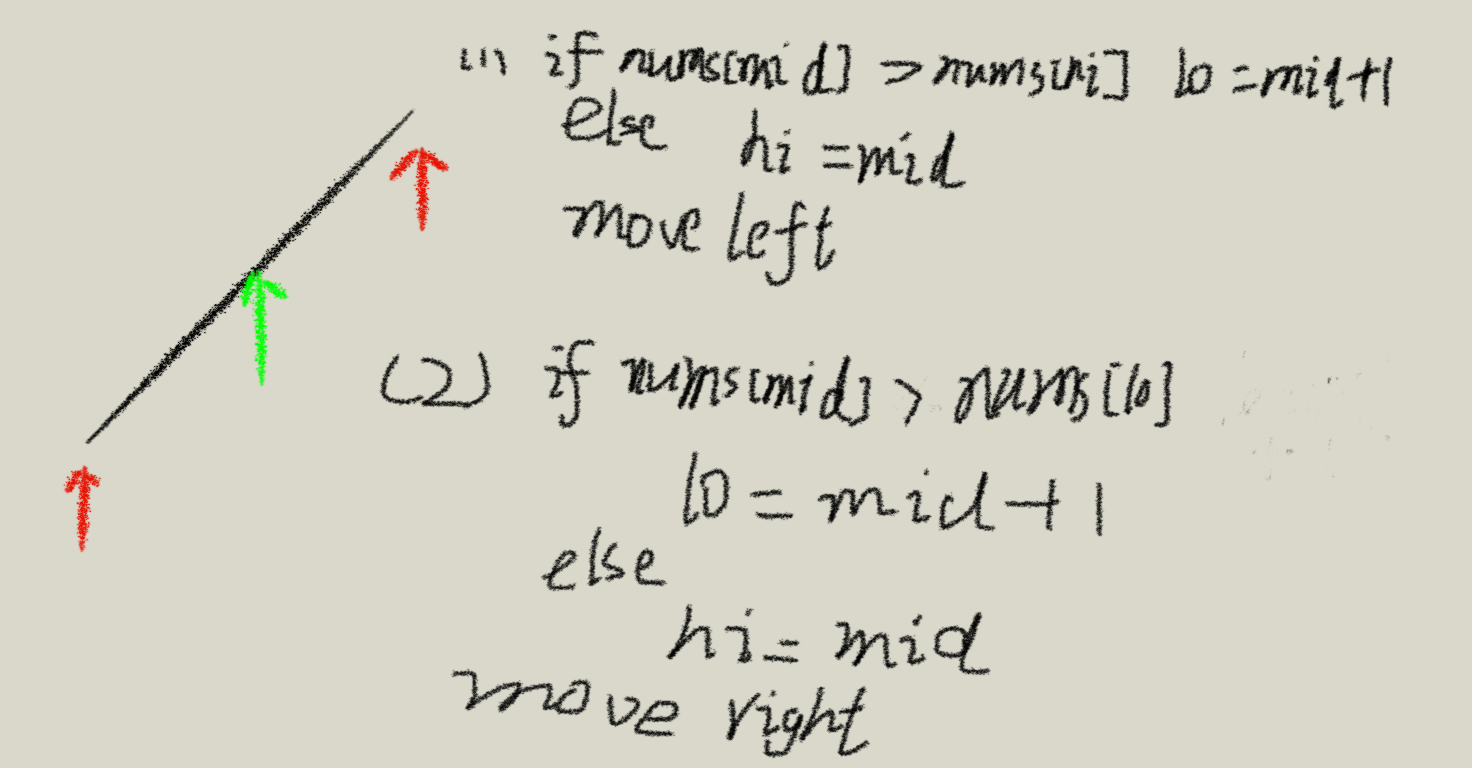 (1) if nums[mid] > nums[hi] lo = mid+1
else hi = mid
move left
(2) if nums[mid] > nums[lo]
lo = mid + 1
else
hi = mid
move right